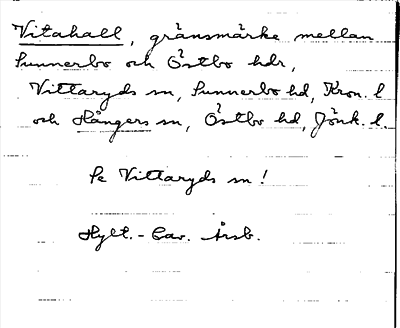 Vitahall, gränsmärke mellan
Sunnerbo och Östbo hdr,
Vittaryds sn, Sunnerbo hd, Kron. l
och Hångers sn, Östbo hd, Jönk. l.
Se Vittaryds sn!
Hylt.-Cav. Årsb.